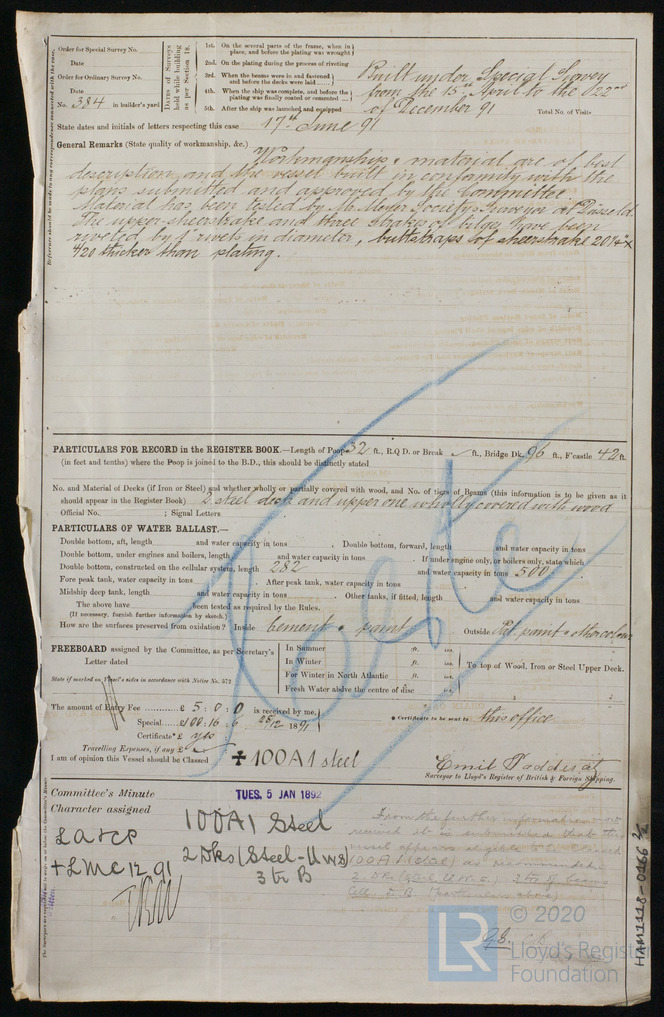 Order for Special Survey No.
Date
Order for Ordinary Survey No.
Date
No. 384 in builder's yard.
Dates of Surveys held while building as per Section 18.
1st. On the several parts of the frame, when in place, and before the plating was wrought
2nd. On the plating during the process of riveting
3rd. When the beams were in and fastened, and before the decks were laid
4th. When the ship was complete, and before the plating was finally coated or cemented
5th. After the ship was launched and equipped
Built under Special Survey
from the 15th April to the 22nd
of December 91
Total No. of Visits
State dates and initials of letters respecting this case 17th June 91
General Remarks (State quality of workmanship, &c.) Workmanship & material are of best
description and the vessel built in conformity with the
plans submitted and approved by the Committee
Material has been tested by Mr Meyer Society's Surveyor at Düsseld.
The upper sheerstrake and three strakes of bilge have been
riveted by 1" rivets in diameter, buttstraps of sheerstrake
/20 thicker than plating.
PARTICULARS FOR RECORD in the REGISTER BOOK.—Length of Poop 32 ft., R.Q D. or Break ft., Bridge Dk. 96 ft., F'castle 42 ft.
(in feet and tenths) where the Poop is joined to the B.D., this should be distinctly stated
No. and Material of Decks (if Iron or Steel) and whether wholly or partially covered with wood, and No. of tiers of Beams (this information is to be given as it
should appear in the Register Book) 2 steel deck and upper one wholly covered with wood
Official No. ; Signal Letters
PARTICULARS OF WATER BALLAST.—
Double bottom, aft, length and water capacity in tons . Double bottom, forward, length and water capacity in tons
Double bottom, under engines and boilers, length and water capacity in tons . If under engine only, or boilers only, state which
Double bottom, constructed on the cellular system, length 282 and water capacity in tons 500
Fore peak tank, water capacity in tons After peak tank, water capacity in tons
Midship deep tank, length and water capacity in tons . Other tanks, if fitted, length and water capacity in tons
The above have been tested as required by the Rules.
(If necessary, furnish further information by sketch.)
How are the surfaces preserved from oxidation? Inside Cement & paint Outside paint & other colour
FREEBOARD assigned by the Committee, as per Secretary's
Letter dated
State if marked on Vessel's sides in accordance with Notice No. 572
In Summer ft. ins.
In Winter ft. ins.
For Winter in North Atlantic ft. ins.
Fresh Water above the centre of disc
To top of Wood, Iron or Steel Upper Deck.
The amount of Entry Fee £ 5 : 0 : 0 is received by me,
Special £100 : 16 : 6 28/12 1891
Certificate* £ yes
Travelling Expenses, if any £
* Certificate to be sent to this office
I am of opinion this Vessel should be Classed ✠ 100A1 steel
Emil Padderatz
Surveyor to Lloyd's Register of British & Foreign Shipping.
Committee's Minute
TUES. 5 JAN 1892
Character assigned
100A1 Steel
2 Dks (Steel-U W S)
3 tr B
LA & CP
+ LMC 12.91
From the further information now
received it is submitted that this
vessel appears eligible to be classed
100A1 (steel) as recommended.
2 Dks (steel U.W.S.) 3 tr of beams
Cell. D.B. (Particulars above)
HAM1118-0166 2/2
LR
© 2020
Lloyd's Register
Foundation